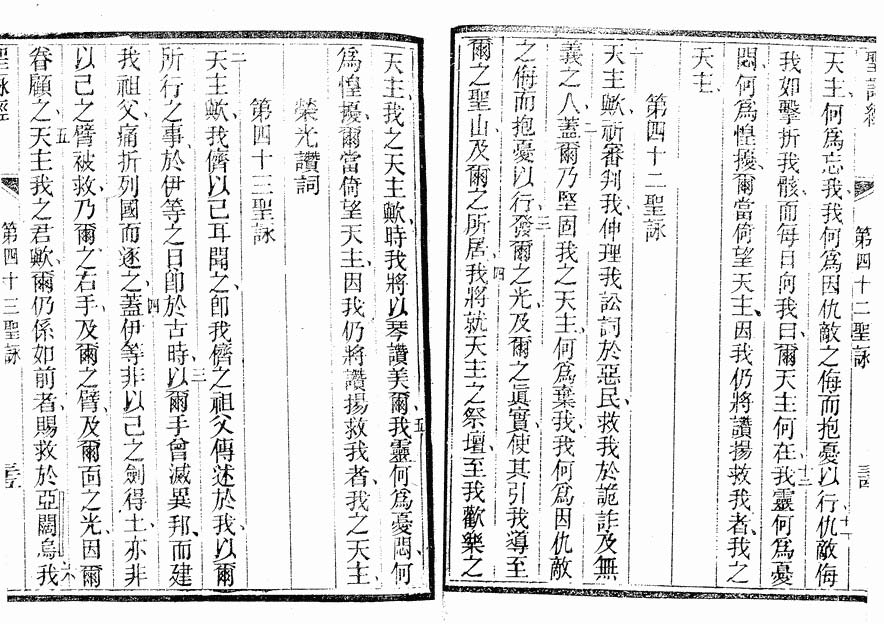 聖詠經
第四十二聖詠
三四
天主、何爲忘我、我何爲因仇敵之侮而抱憂以行、十一仇敵侮
我如擊折我骸、而每日向我曰、爾天主何在、十二我靈何爲憂
悶、何爲惶擾、爾當倚望天主、因我仍將讚揚救我者、我之
天主、
第四十二聖詠
一天主歟、祈審判我、伸理我訟詞於惡民、救我於詭詐及無
義之人、二蓋爾乃堅固我之天主、何爲棄我、我何爲因仇敵
之侮而抱憂以行、三發爾之光及爾之眞實、使其引我導至
爾之聖山及爾之所居、四我將就天主之祭壇、至我歡樂之
天主、我之天主歟、時我將以琴讚美爾、五我靈何爲憂悶、何
爲惶擾、爾當倚望天主、因我仍將讚揚救我者、我之天主、
榮光讚詞
第四十三聖詠
二天主歟、我儕以己耳聞之、卽我儕之祖父傳述於我、以爾
所行之事於伊等之日、卽於古時、三以爾手曾滅異邦、而建
我祖父、痛折列國而逐之、四蓋伊等非以己之劍得土、亦非
以己之臂被救、乃爾之右手及爾之臂、及爾面之光、因爾
眷顧之、五天主我之君歟、爾仍係如前者、賜救於亞闊烏、六我
聖詠經
第四十三聖詠
三五